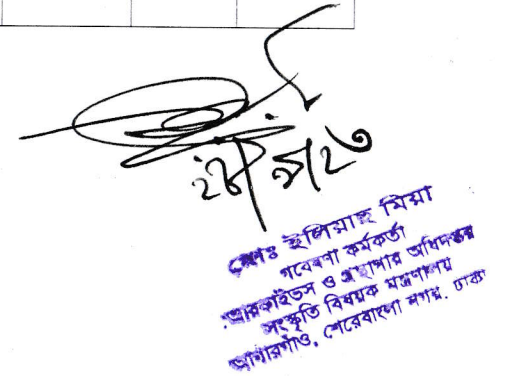 ২৮/৯/২৩
মোঃ ইলিয়াছ মিয়া
গবেষণা কর্মকর্তা
আরকাইভস ও গ্রন্থাগার অধিদপ্তর
সংস্কৃতি বিষয়ক মন্ত্রণালয়
আগারগাঁও, শেরেবাংলা নগর, ঢাকা